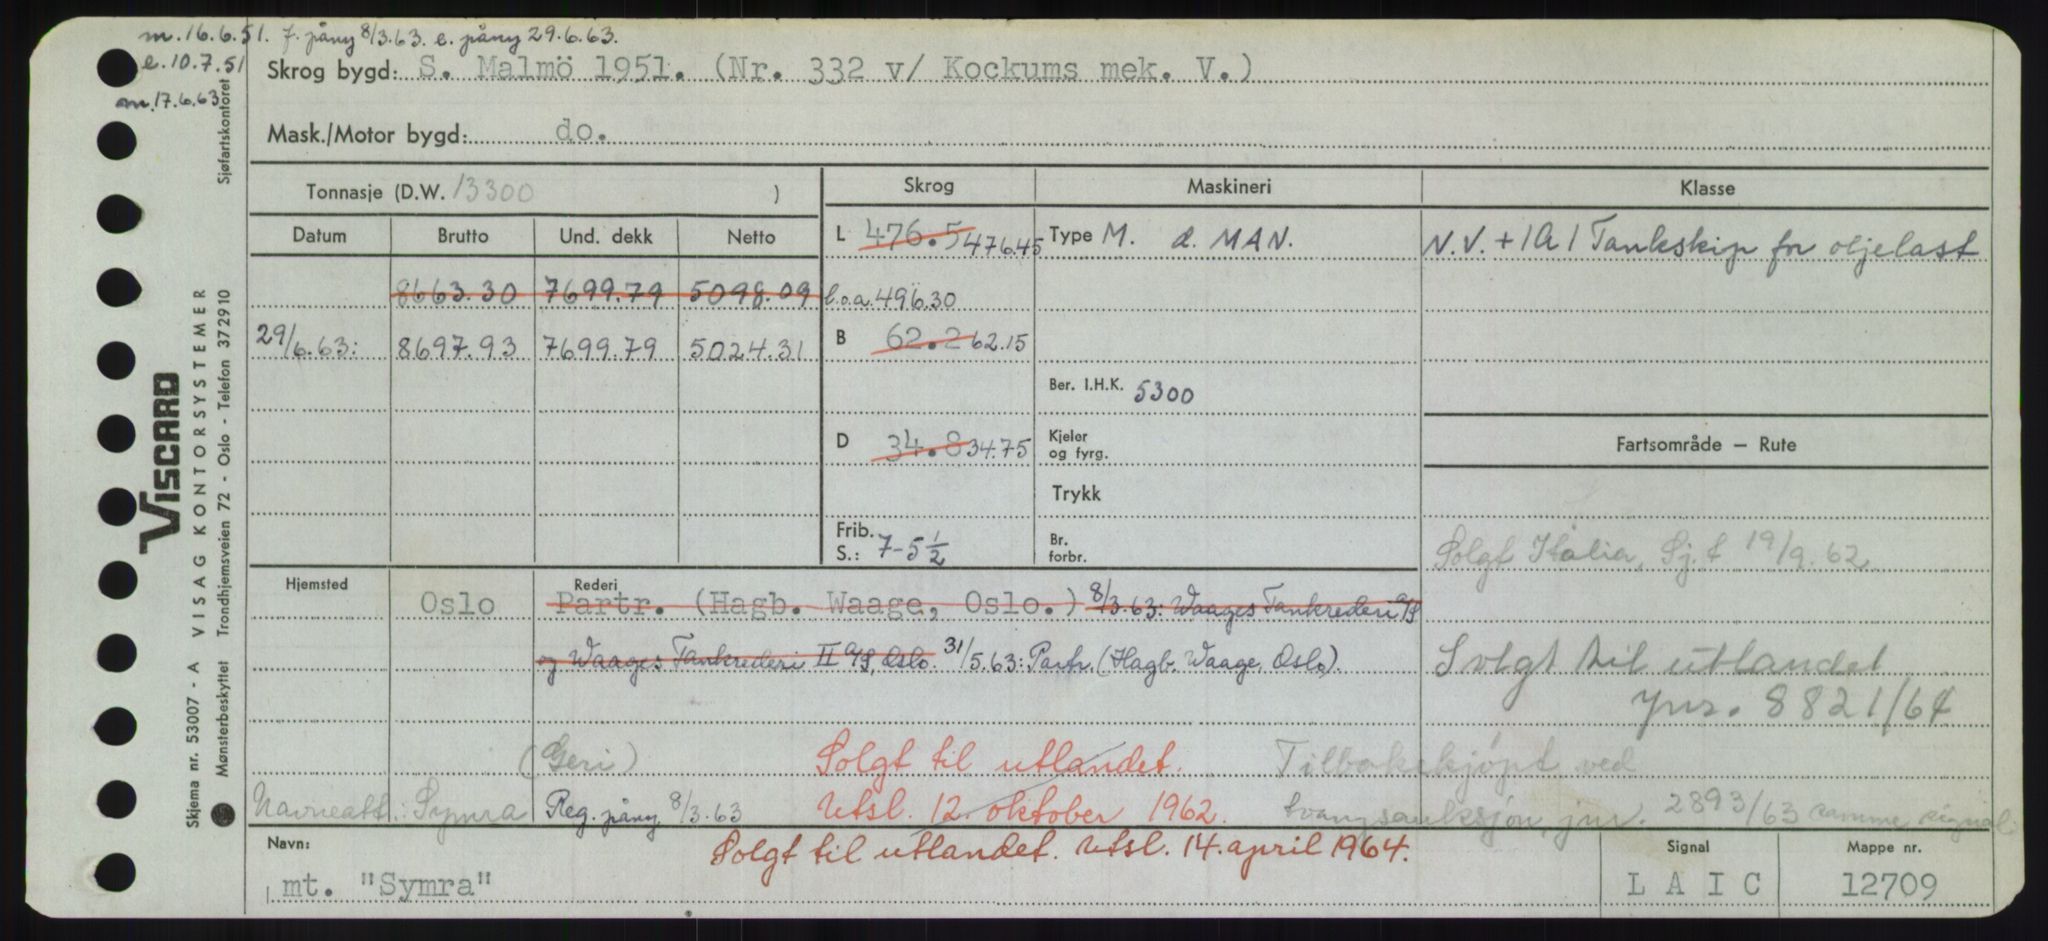 m. 16.6.51. f. påny 8/3.63. e. påny 29.6.63.
e. 10.7.51
m. 17.6.63
Skrog bygd: S. Malmö 1951. (Nr. 332 v/ Kockums mek. V.)
Mask./Motor bygd: do.
Tonnasje (D.W. 13300 )
Skrog Maskineri Klasse
Datum Brutto Und. dekk Netto
L 476.5 476.45 Type M. d. MAN. N.V. + 1A1 Tankskip for oljelast
8663.30 7699.79 5098.09 l.o.a. 496.30
29/6.63: 8697.93 7699.79 5024.31 B 62.2 62.15
Ber. I.H.K. 5300
D 34.8 34.75 Kjeler og fyrg.
Fartsområde — Rute
Trykk
Frib. S.: 7-5 1/2 Br. forbr.
Solgt Italia, Sj.t 19/9.62
Hjemsted Rederi
Oslo Partr. (Hagb. Waage, Oslo.) 8/3.63: Waages Tankrederi A/S
og Waages Tankrederi II A/S, Oslo. 31/5.63: Partr. (Hagb. Waage, Oslo).
Solgt til utlandet
jnr. 8821/64
(Geri) Solgt til utlandet. Tilbakekjøpt ved
Navneatt.: Symra Reg. påny 8/3.63 Utsl. 12. oktober 1962. tvangsauksjon, jnr. 2893/63 samme signal
Solgt til utlandet. Utsl. 14. april 1964.
Navn: mt. "Symra"
Signal L A I C
Mappe nr. 12709
Skjema nr. 53007 - A VISAG KONTORSYSTEMER
VISCARD
Mønsterbeskyttet Trondhjemsveien 72 - Oslo - Telefon 372910 Sjøfartskontoret